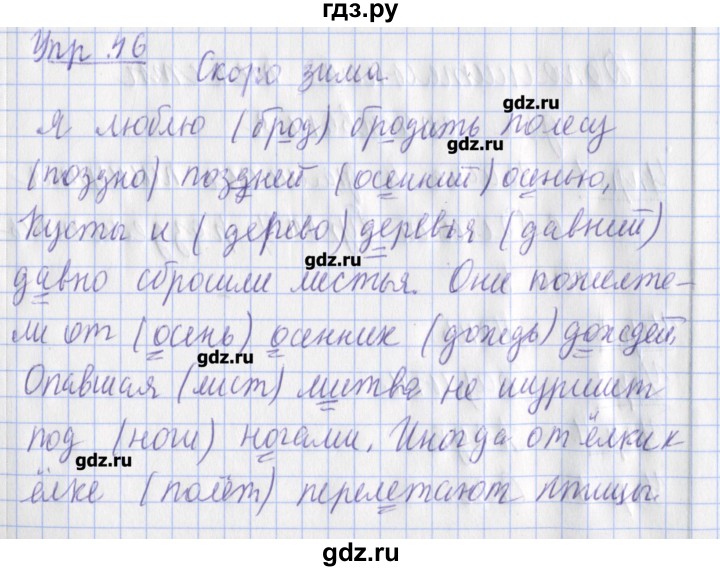 гдз.ру
Упр. 46
Скоро зима.
gdz.ru
Я люблю (брод) бродить по лесу
(поздно) поздней (осенний) осенью,
Кусты и (дерево) деревья (давний)
gdz.ru
давно сбросили листья. Они пожелте-
ли от (осень) осенних (дождь) дождей.
gdz.ru
Опавшая (лист) листва не шуршит
под (ноги) ногами. Иногда от ёлки к
gdz.ru
ёлке (полёт) перелетают птицы.
gdz.ru